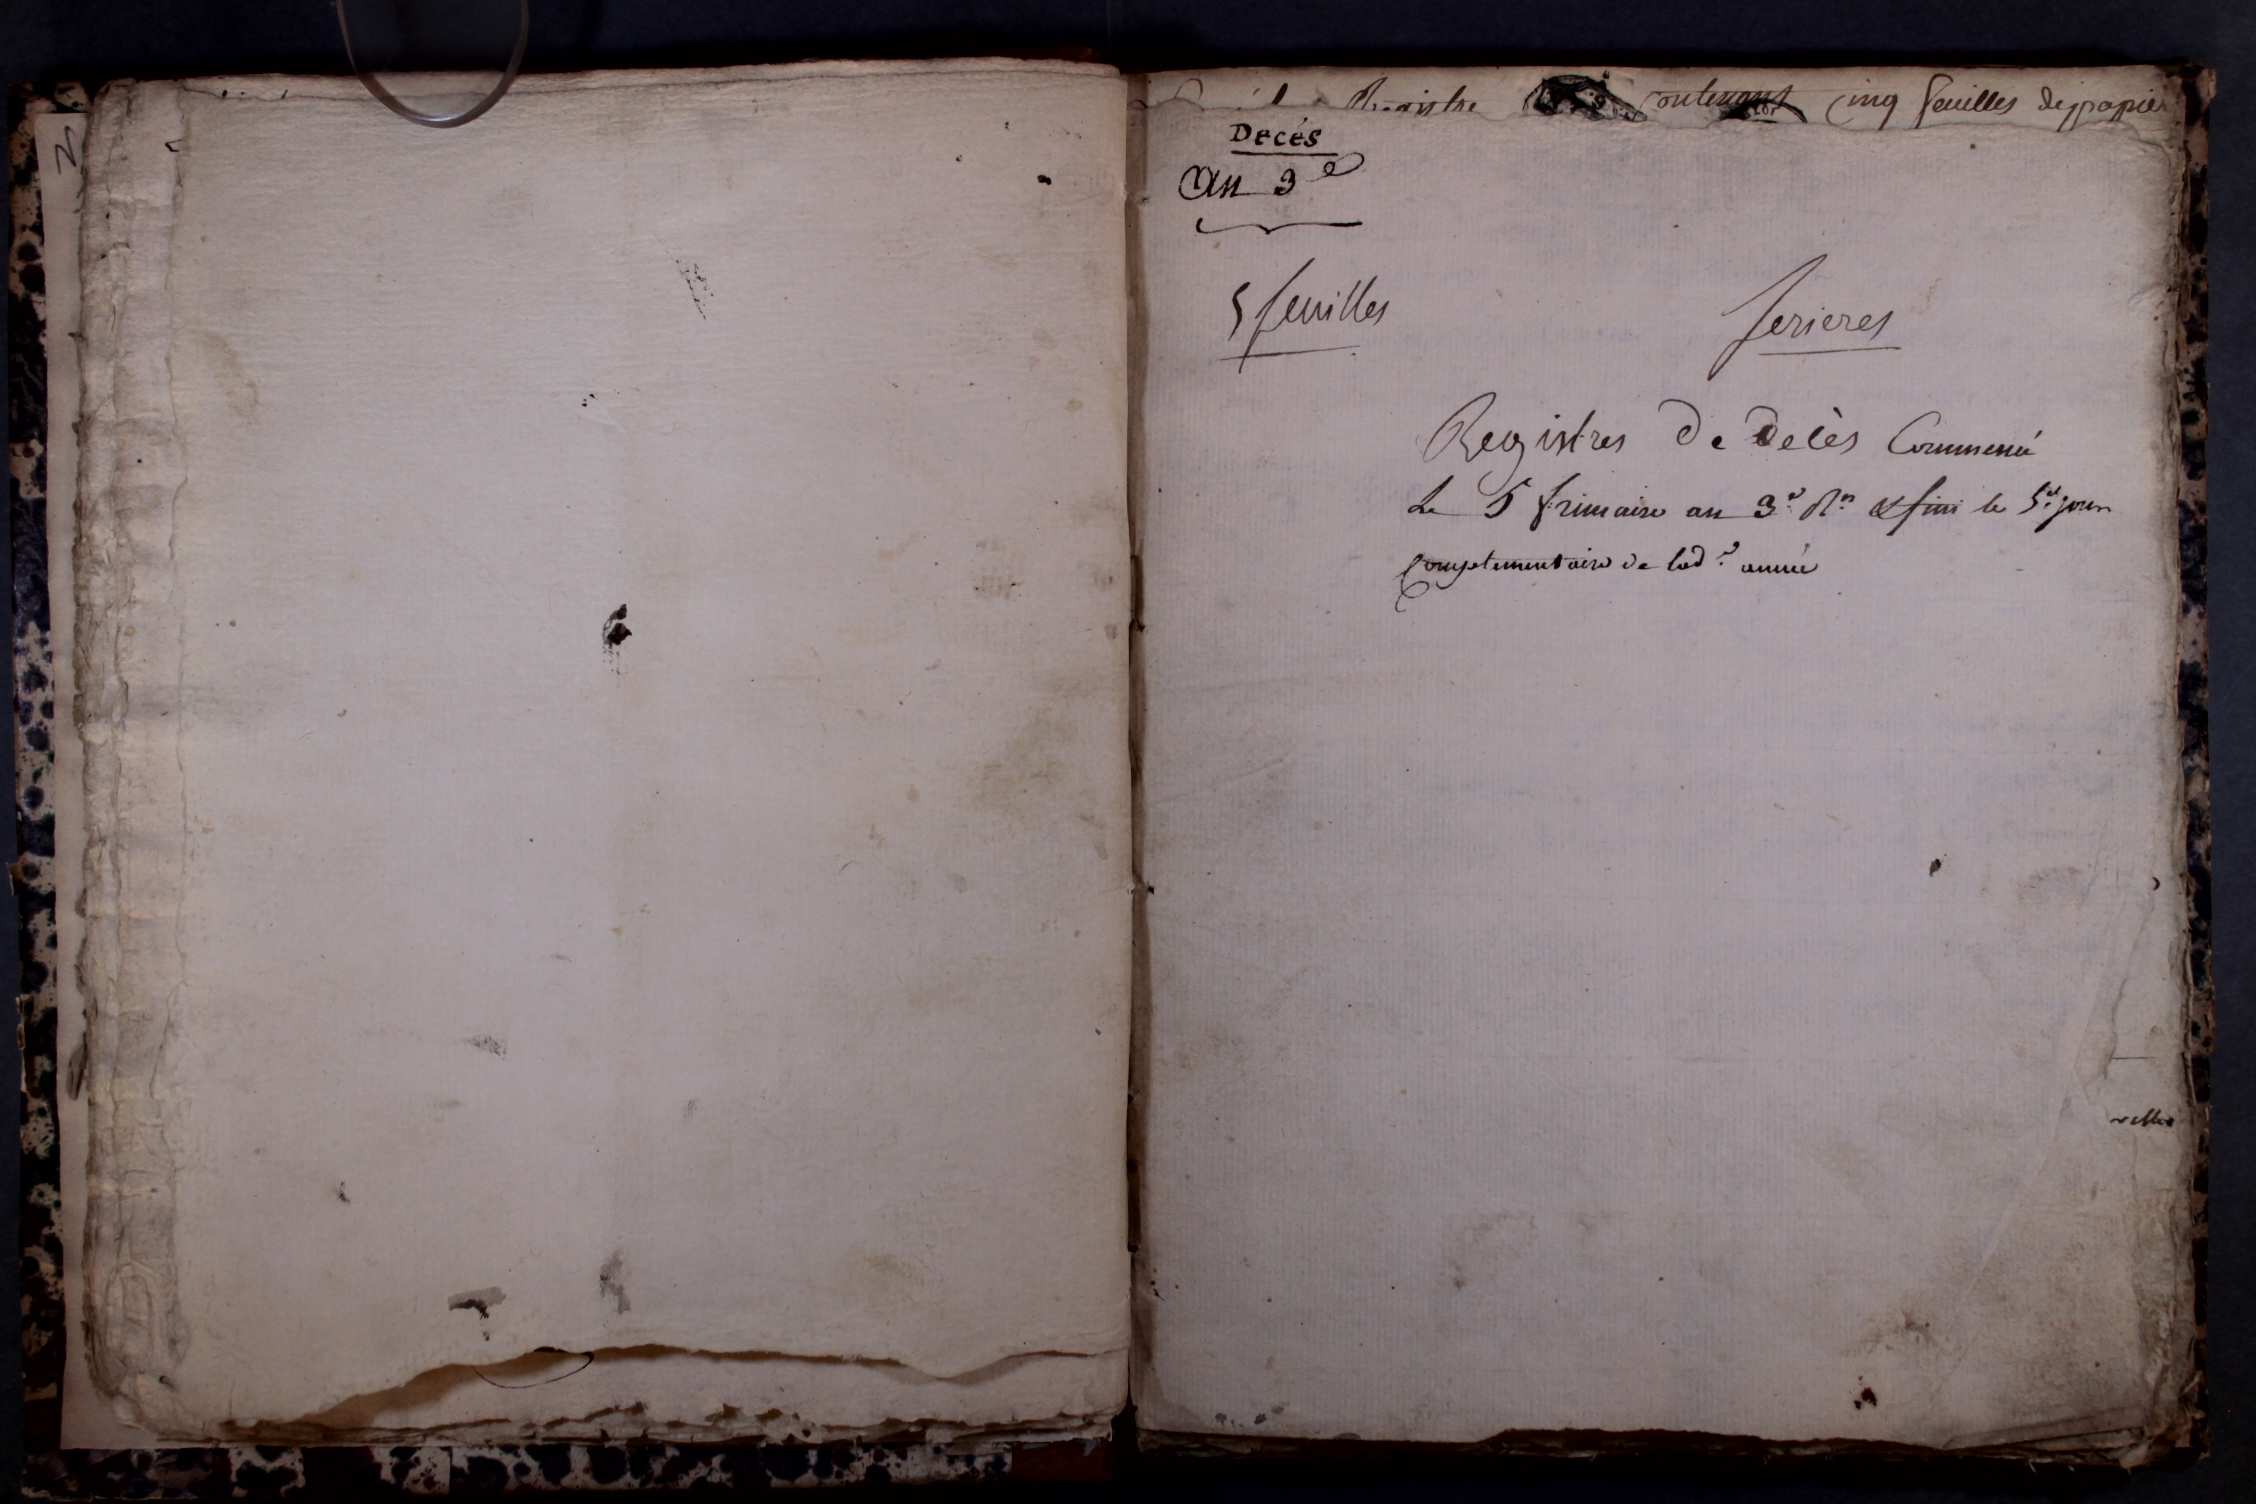 Registre contenant cinq feuilles de papier
Decés
An 3e
5 feuilles
serieres
Registres de decès Commencé
Le 5 frimaire an 3e Rn & fini le 5e jour
Complementaire de lad.e année